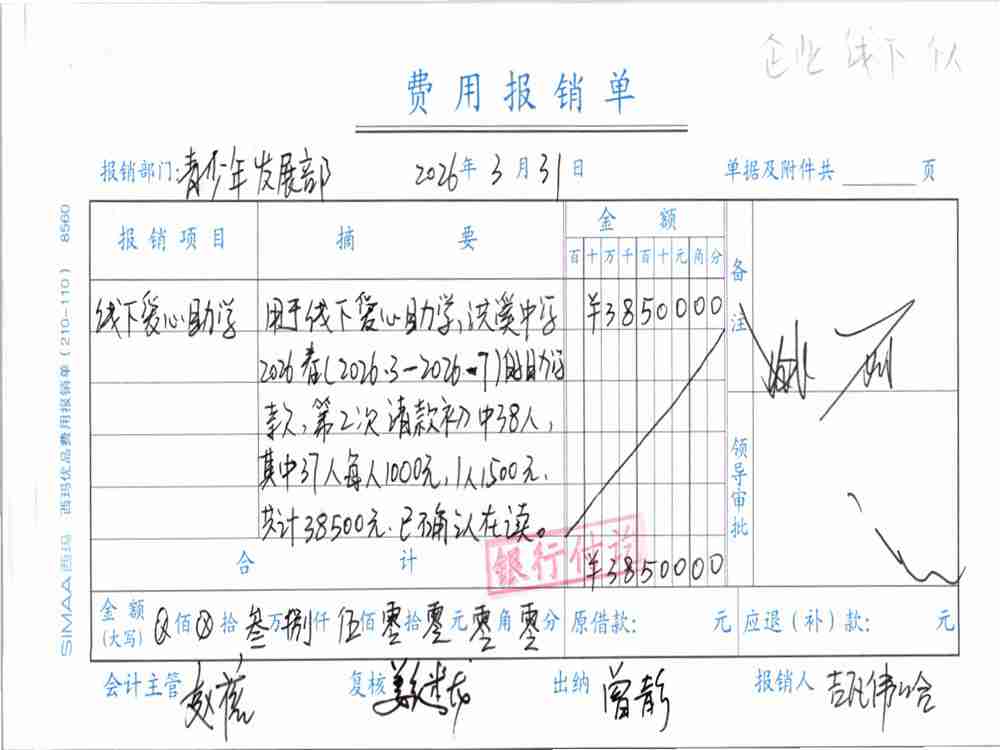 企业 线下 个人
费用报销单
报销部门:青少年发展部 2026年3月31日 单据及附件共 页
报销项目 摘要 金额 备注
百十万千百十元角分
线下爱心助学 用于线下爱心助学,浣溪中学 ¥3850000
2026春(2026.3-2026.7)的助学
款,第2次请款初中38人,
其中37人每人1000元,1人1500元.
共计38500元.已确认在读。
领导审批
银行付讫
合计 ¥3850000
金额(大写) ⊗佰⊗拾叁万捌仟伍佰零拾零元零角零分 原借款: 元 应退(补)款: 元
会计主管 复核 出纳 曾静 报销人
SIMAA西玛 西玛优品费用报销单(210-110) 8560